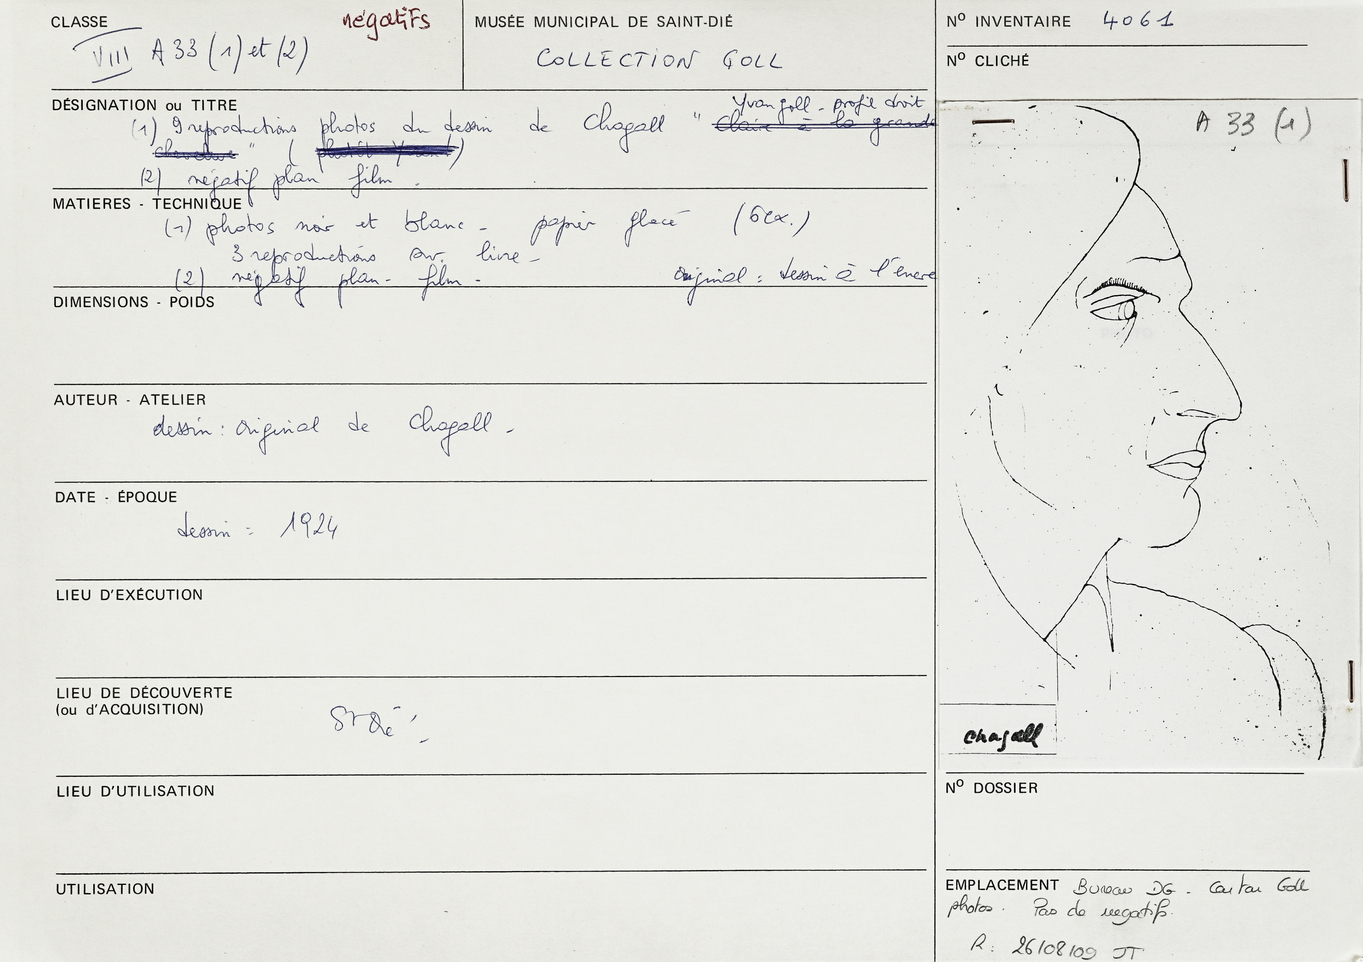 CLASSE
négatifs
VIII A 33 (1) et (2)
MUSÉE MUNICIPAL DE SAINT-DIÉ
COLLECTION GOLL
Nº INVENTAIRE 4061
Nº CLICHÉ
DÉSIGNATION ou TITRE
Yvan goll - profil droit
(1) 9 reproductions photos du dessin de Chagall " Claire à la grande
chevelure " ( )
(2) négatif plan film .
MATIERES - TECHNIQUE
(1) photos noir et blanc - papier glacé (6 ex.)
3 reproductions sur livre -
(2) négatif plan - film - original : dessin à l'encre
DIMENSIONS - POIDS
AUTEUR - ATELIER
dessin : original de Chagall -
DATE - ÉPOQUE
dessin : 1924
LIEU D'EXÉCUTION
LIEU DE DÉCOUVERTE
(ou d'ACQUISITION)
St Dié
LIEU D'UTILISATION
UTILISATION
A 33 (1)
chagall
Nº DOSSIER
EMPLACEMENT Bureau DG - Carton Goll
photos . Pas de negatifs.
R : 26/08/09 JT